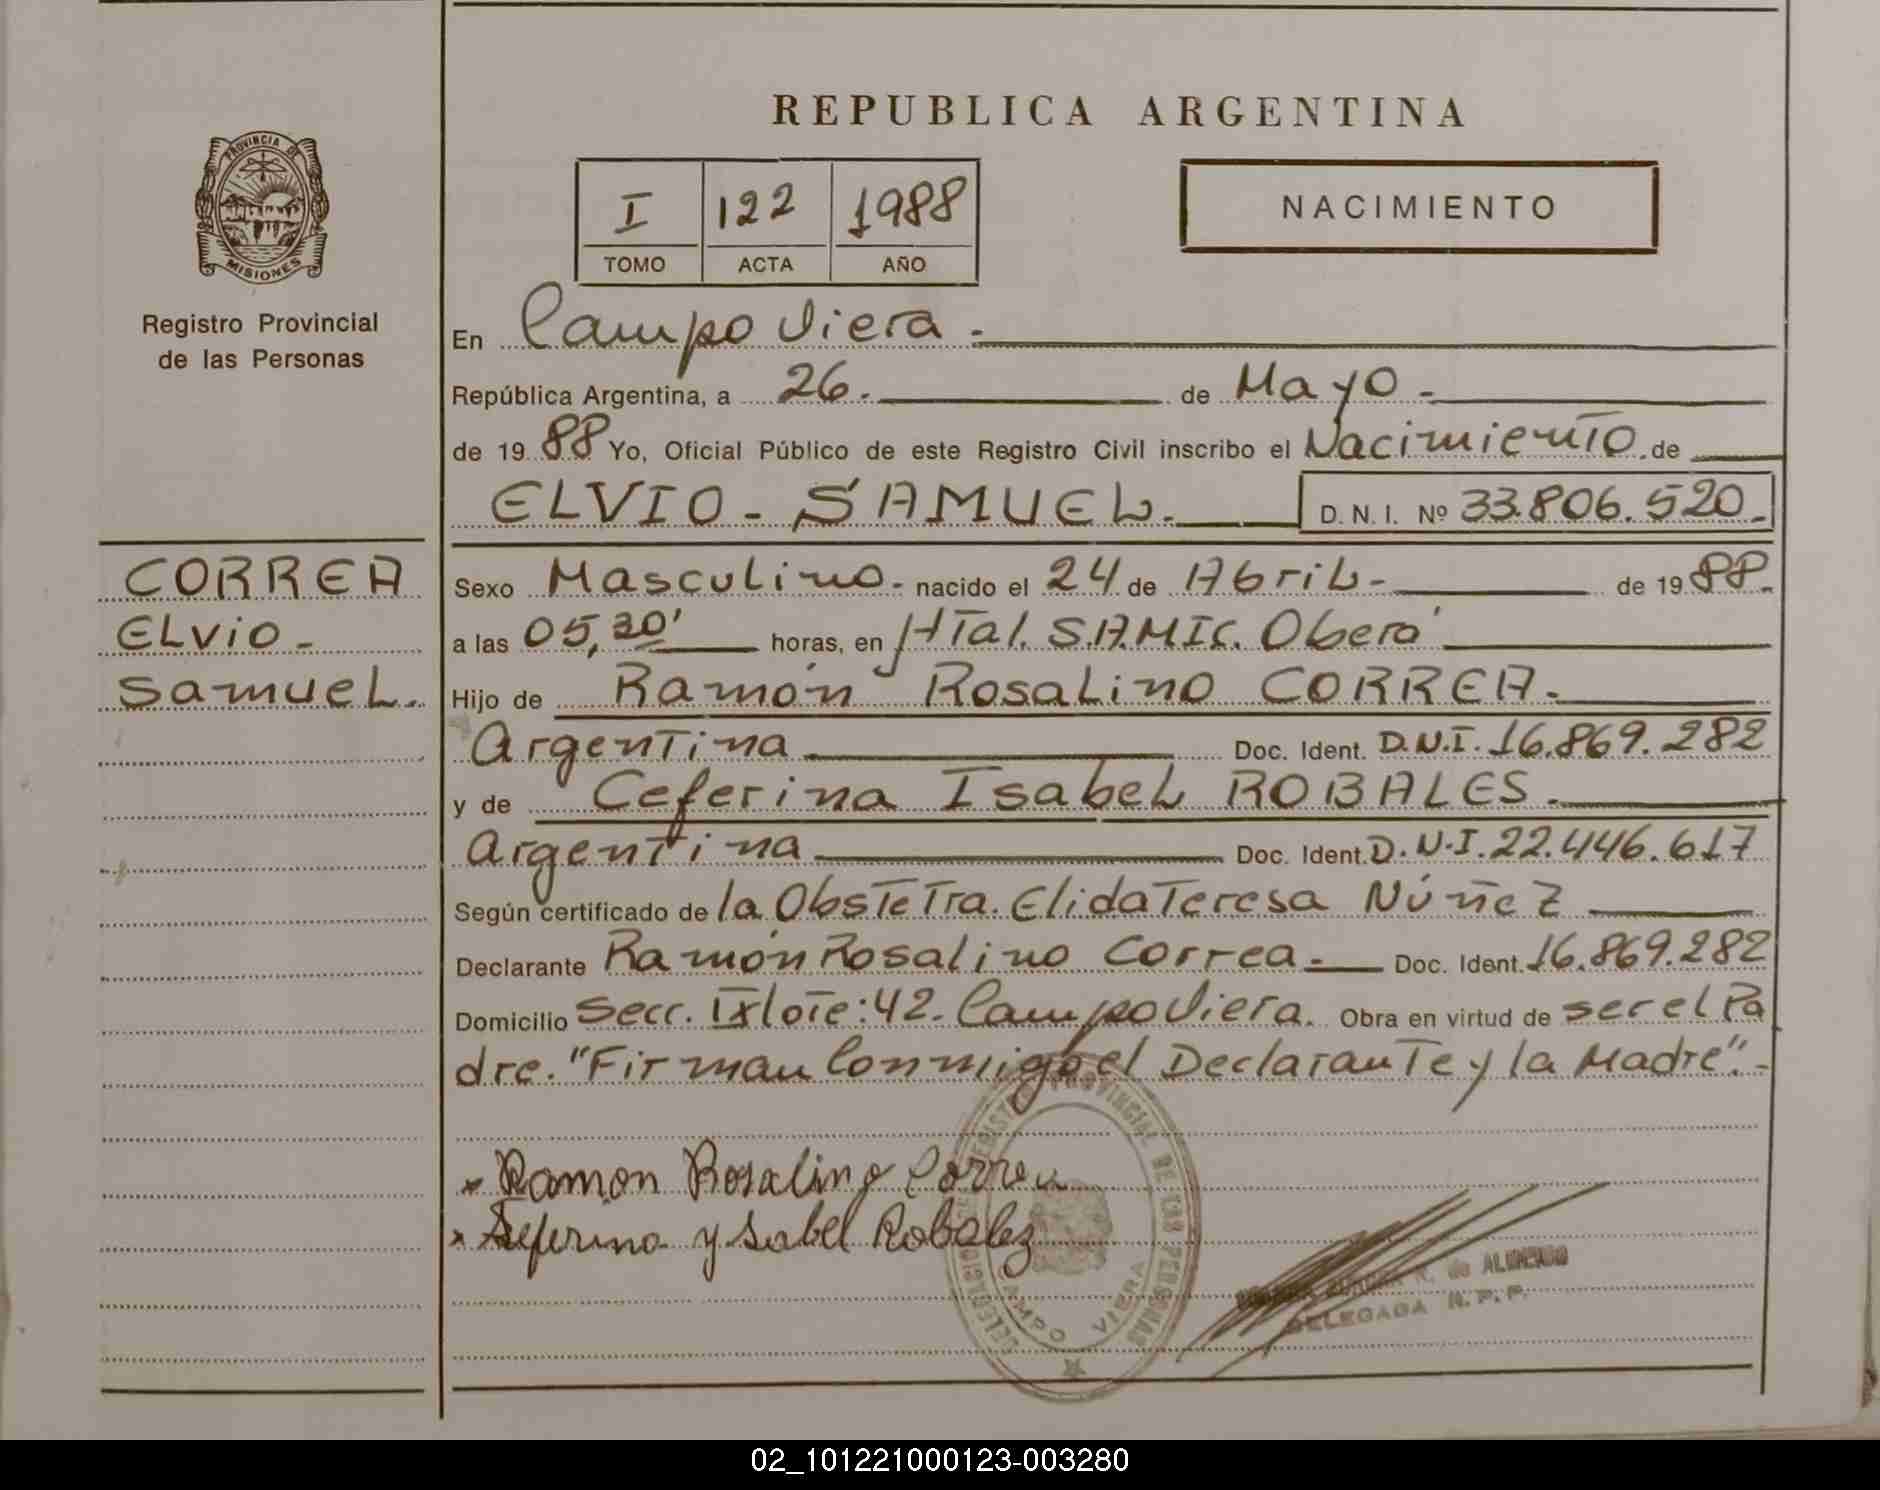 REPUBLICA ARGENTINA
PROVINCIA DE
MISIONES
Registro Provincial
de las Personas
I 122 1988
TOMO ACTA AÑO
NACIMIENTO
En Campo Viera.
República Argentina, a 26. de Mayo.
de 19 88 Yo, Oficial Público de este Registro Civil inscribo el Nacimiento de
ELVIO - SAMUEL. D. N. I. Nº 33.806.520.
CORREA
ELViO -
SamueL.
Sexo Masculino. nacido el 24 de Abril - de 19 88.
a las 05, horas, en HTal. S.A.MIC. Oberá
Hijo de Ramón Rosalino CORREA.
Argentina Doc. Ident. D.N.I. 16.869.282
y de Ceferina Isabel ROBALES.
Argentina Doc. Ident. D.N.I. 22.446.617
Según certificado de la Obstetra. Elida Teresa Núñez
Declarante Ramón Rosalino Correa. Doc. Ident. 16.869.282
Domicilio Secc. IX lote: 42. Campo Viera. Obra en virtud de ser el Pa
dre. "Firman Conmigo el Declarante y la Madre".
x Ramon Rosalino Correa
x Seferina ysabel Robalez
PROVINCIAL DE LAS PERSONAS
CAMPO VIERA
R. de
DELEGADA R. P. P.
02_101221000123-003280